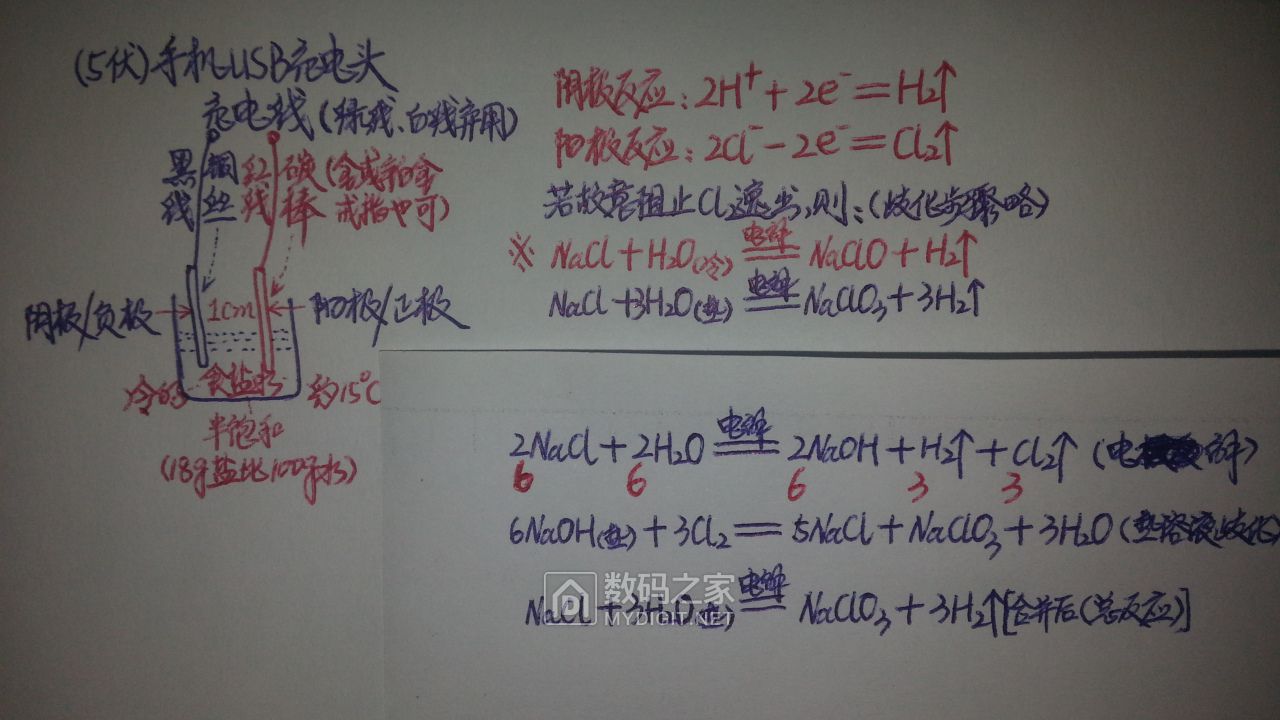 (5伏)手机USB充电头
充电线(绿线、白线弃用)
黑线
铜丝
红线
碳棒(金或铂金戒指也可)
阴极/负极
1cm
阳极/正极
冷的
食盐水
约15℃
半饱和
(18g盐比100g水)
阴极反应:2H⁺+2e⁻=H₂↑
阳极反应:2Cl⁻-2e⁻=Cl₂↑
若故意阻止Cl₂逸出,则:(歧化步骤略)
※ NaCl+H₂O(冷) 电解 NaClO+H₂↑
NaCl+3H₂O(热) 电解 NaClO₃+3H₂↑
2NaCl+2H₂O 电解 2NaOH+H₂↑+Cl₂↑(电解)
6 6 6 3 3
6NaOH(热)+3Cl₂=5NaCl+NaClO₃+3H₂O(热溶液歧化)
NaCl+3H₂O(热) 电解 NaClO₃+3H₂↑[合并后(总反应)]
数码之家
MYDIGIT.NET